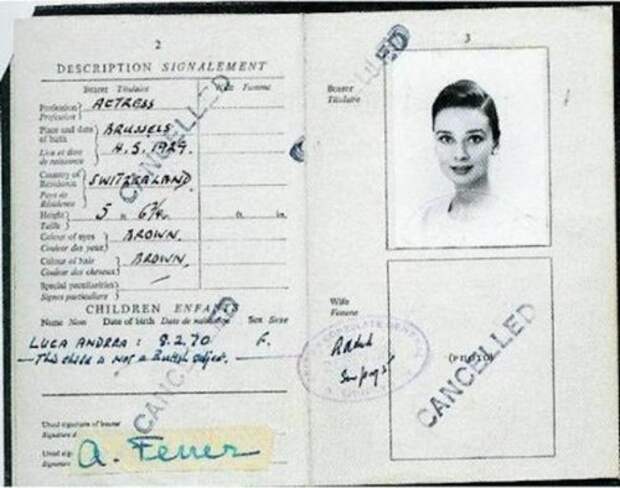 2
DESCRIPTION SIGNALEMENT
Bearer Titulaire
Wife Femme
Profession
Profession
ACTRESS
Place and date
of birth
BRUSSELS
Lieu et date
de naissance
4.5.1929.
Country of
Residence
SWITZERLAND
Pays de
Résidence
Height
Taille
5 ft. 6¾ in.
ft. in.
Colour of eyes
Couleur des yeux
BROWN.
Colour of hair
Couleur des cheveux
BROWN.
Special peculiarities
Signes particuliers
CANCELLED
CHILDREN ENFANTS
Name Nom Date of birth Date de naissance Sex Sexe
LUCA ANDREA : 8.2.70
— This child is not a British subject. —
CANCELLED
Usual signature of bearer
Signature d
Usual sig
Signature
A. Ferrer
3
CANCELLED
Bearer
Titulaire
Wife
Femme
(PHOTO)
CANCELLED